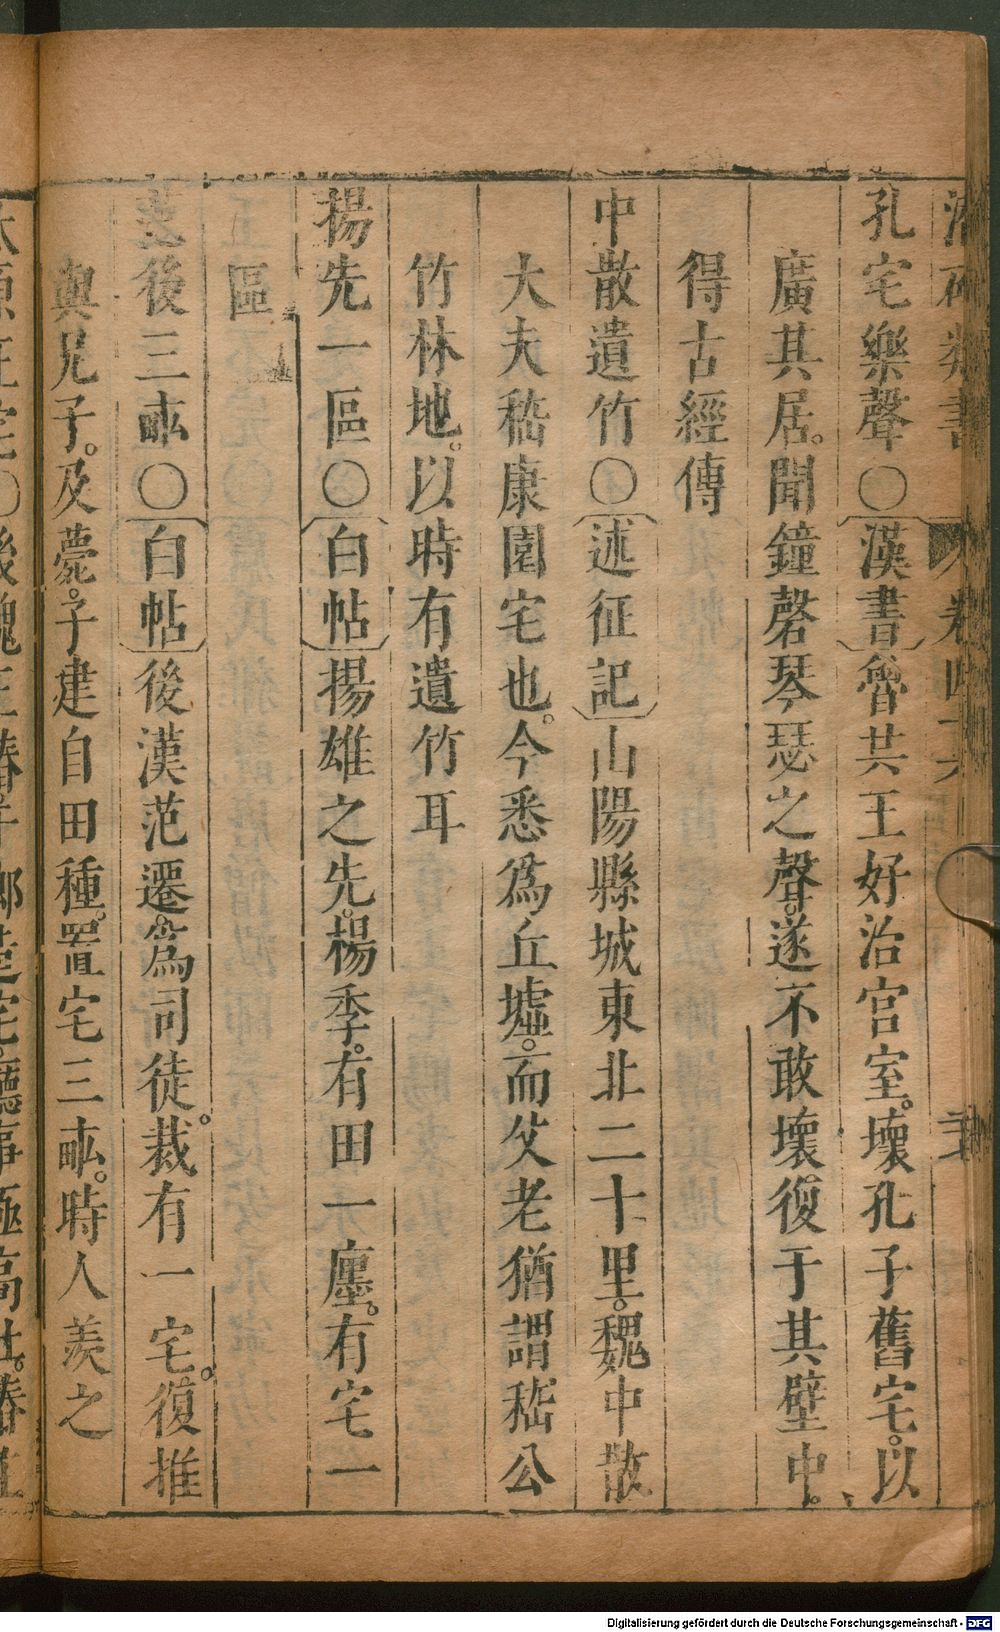 孔宅樂聲○〔漢書〕魯共王好治宮室。壞孔子舊宅。以
廣其居。聞鐘磬琴瑟之聲。遂不敢壞復于其壁中。
得古經傳
中散遺竹○〔述征記〕山陽縣城東北二十里。魏中散
大夫嵇康園宅也。今悉爲丘墟。而父老猶謂嵇公
竹林地。以時有遺竹耳
揚先一區○〔白帖〕揚雄之先。楊季。有田一廛。有宅一
區
後三畝○〔白帖〕後漢范遷。爲司徒。裁有一宅。復推
與兄子。及薨。子建自田種。置宅三畝。時人羨之
Digitalisierung gefördert durch die Deutsche Forschungsgemeinschaft - DFG